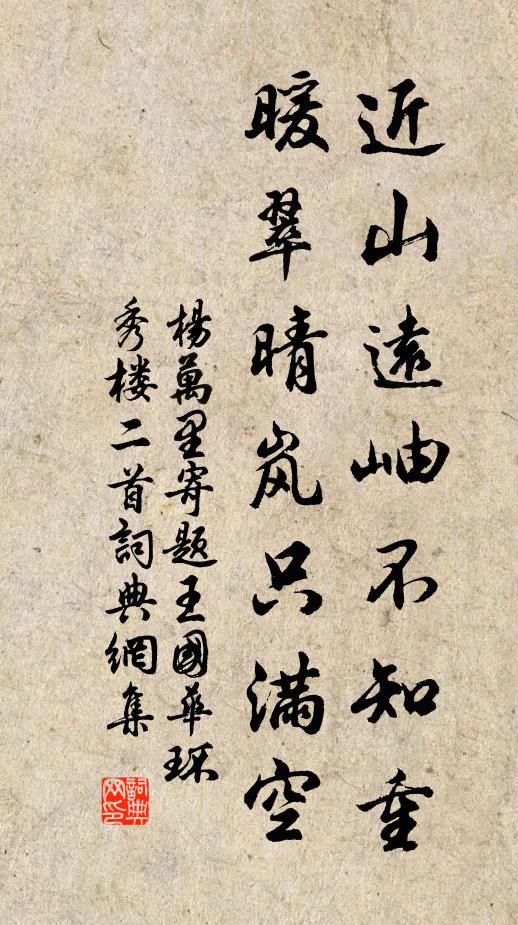 近山遠岫不知重
暖翠晴岚只满空
楊萬里寄題王國華環
秀楼二首詞典網集
詞典
网印